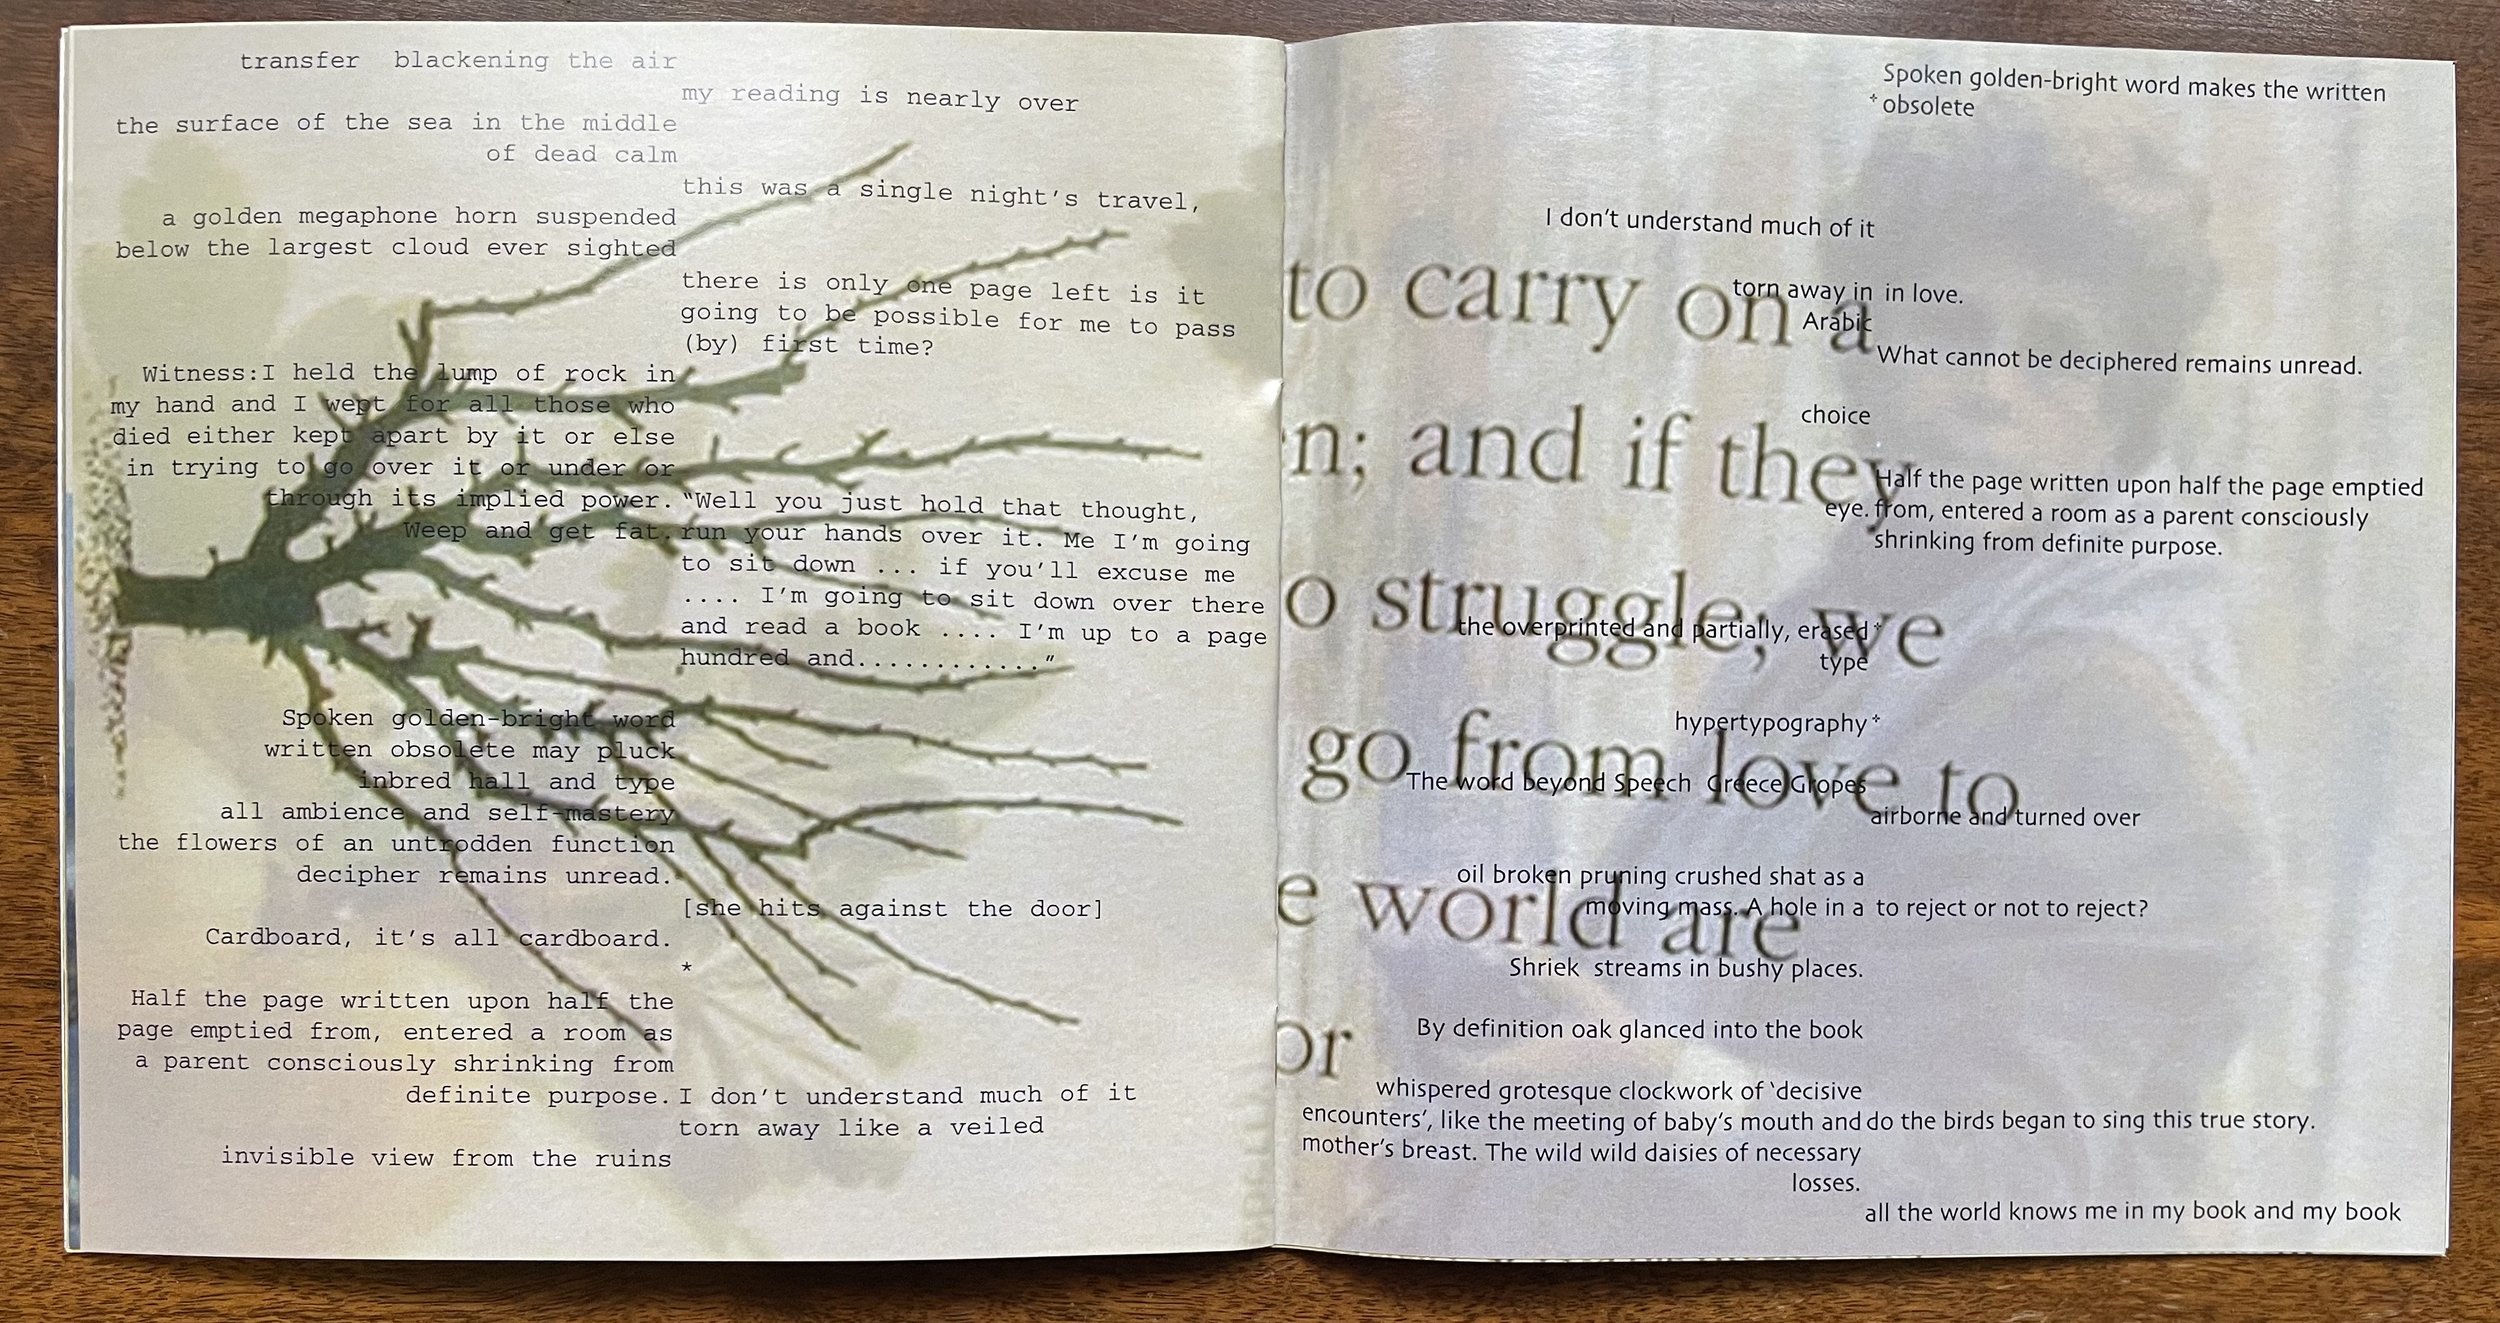 transfer  blackening the air
my reading is nearly over
the surface of the sea in the middle
of dead calm
this was a single night's travel,
a golden megaphone horn suspended
below the largest cloud ever sighted
there is only one page left is it
going to be possible for me to pass
(by) first time?
Witness:I held the lump of rock in
my hand and I wept for all those who
died either kept apart by it or else
in trying to go over it or under or
through its implied power.
Weep and get fat.
"Well you just hold that thought,
run your hands over it. Me I'm going
to sit down ... if you'll excuse me
.... I'm going to sit down over there
and read a book .... I'm up to a page
hundred and............"
Spoken golden-bright word
written obsolete may pluck
inbred hall and type
all ambience and self-mastery
the flowers of an untrodden function
decipher remains unread.
[she hits against the door]
Cardboard, it's all cardboard.
*
Half the page written upon half the
page emptied from, entered a room as
a parent consciously shrinking from
definite purpose.
I don't understand much of it
torn away like a veiled
invisible view from the ruins
Spoken golden-bright word makes the written
* obsolete
I don't understand much of it
torn away in in love.
Arabic
What cannot be deciphered remains unread.
choice
Half the page written upon half the page emptied
eye. from, entered a room as a parent consciously
shrinking from definite purpose.
the overprinted and partially, erased*
type
hypertypography*
The word beyond Speech  Greece Gropes
airborne and turned over
oil broken pruning crushed shat as a
moving mass. A hole in a to reject or not to reject?
Shriek  streams in bushy places.
By definition oak glanced into the book
whispered grotesque clockwork of 'decisive
encounters', like the meeting of baby's mouth and do the birds began to sing this true story.
mother's breast. The wild wild daisies of necessary
losses.
all the world knows me in my book and my book
to carry on a
n; and if they
o struggle; we
go from love to
e world are
or